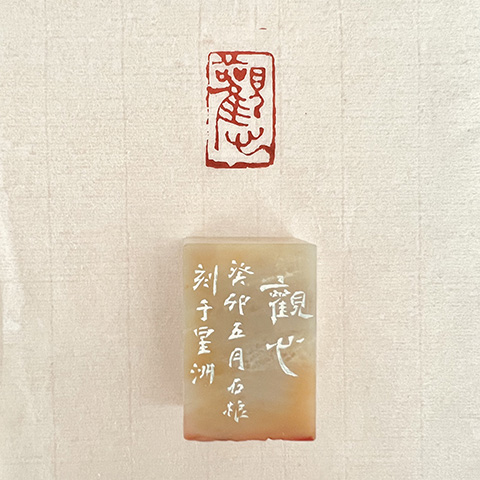 觀心
觀心
癸卯五月石旌
刻于星洲